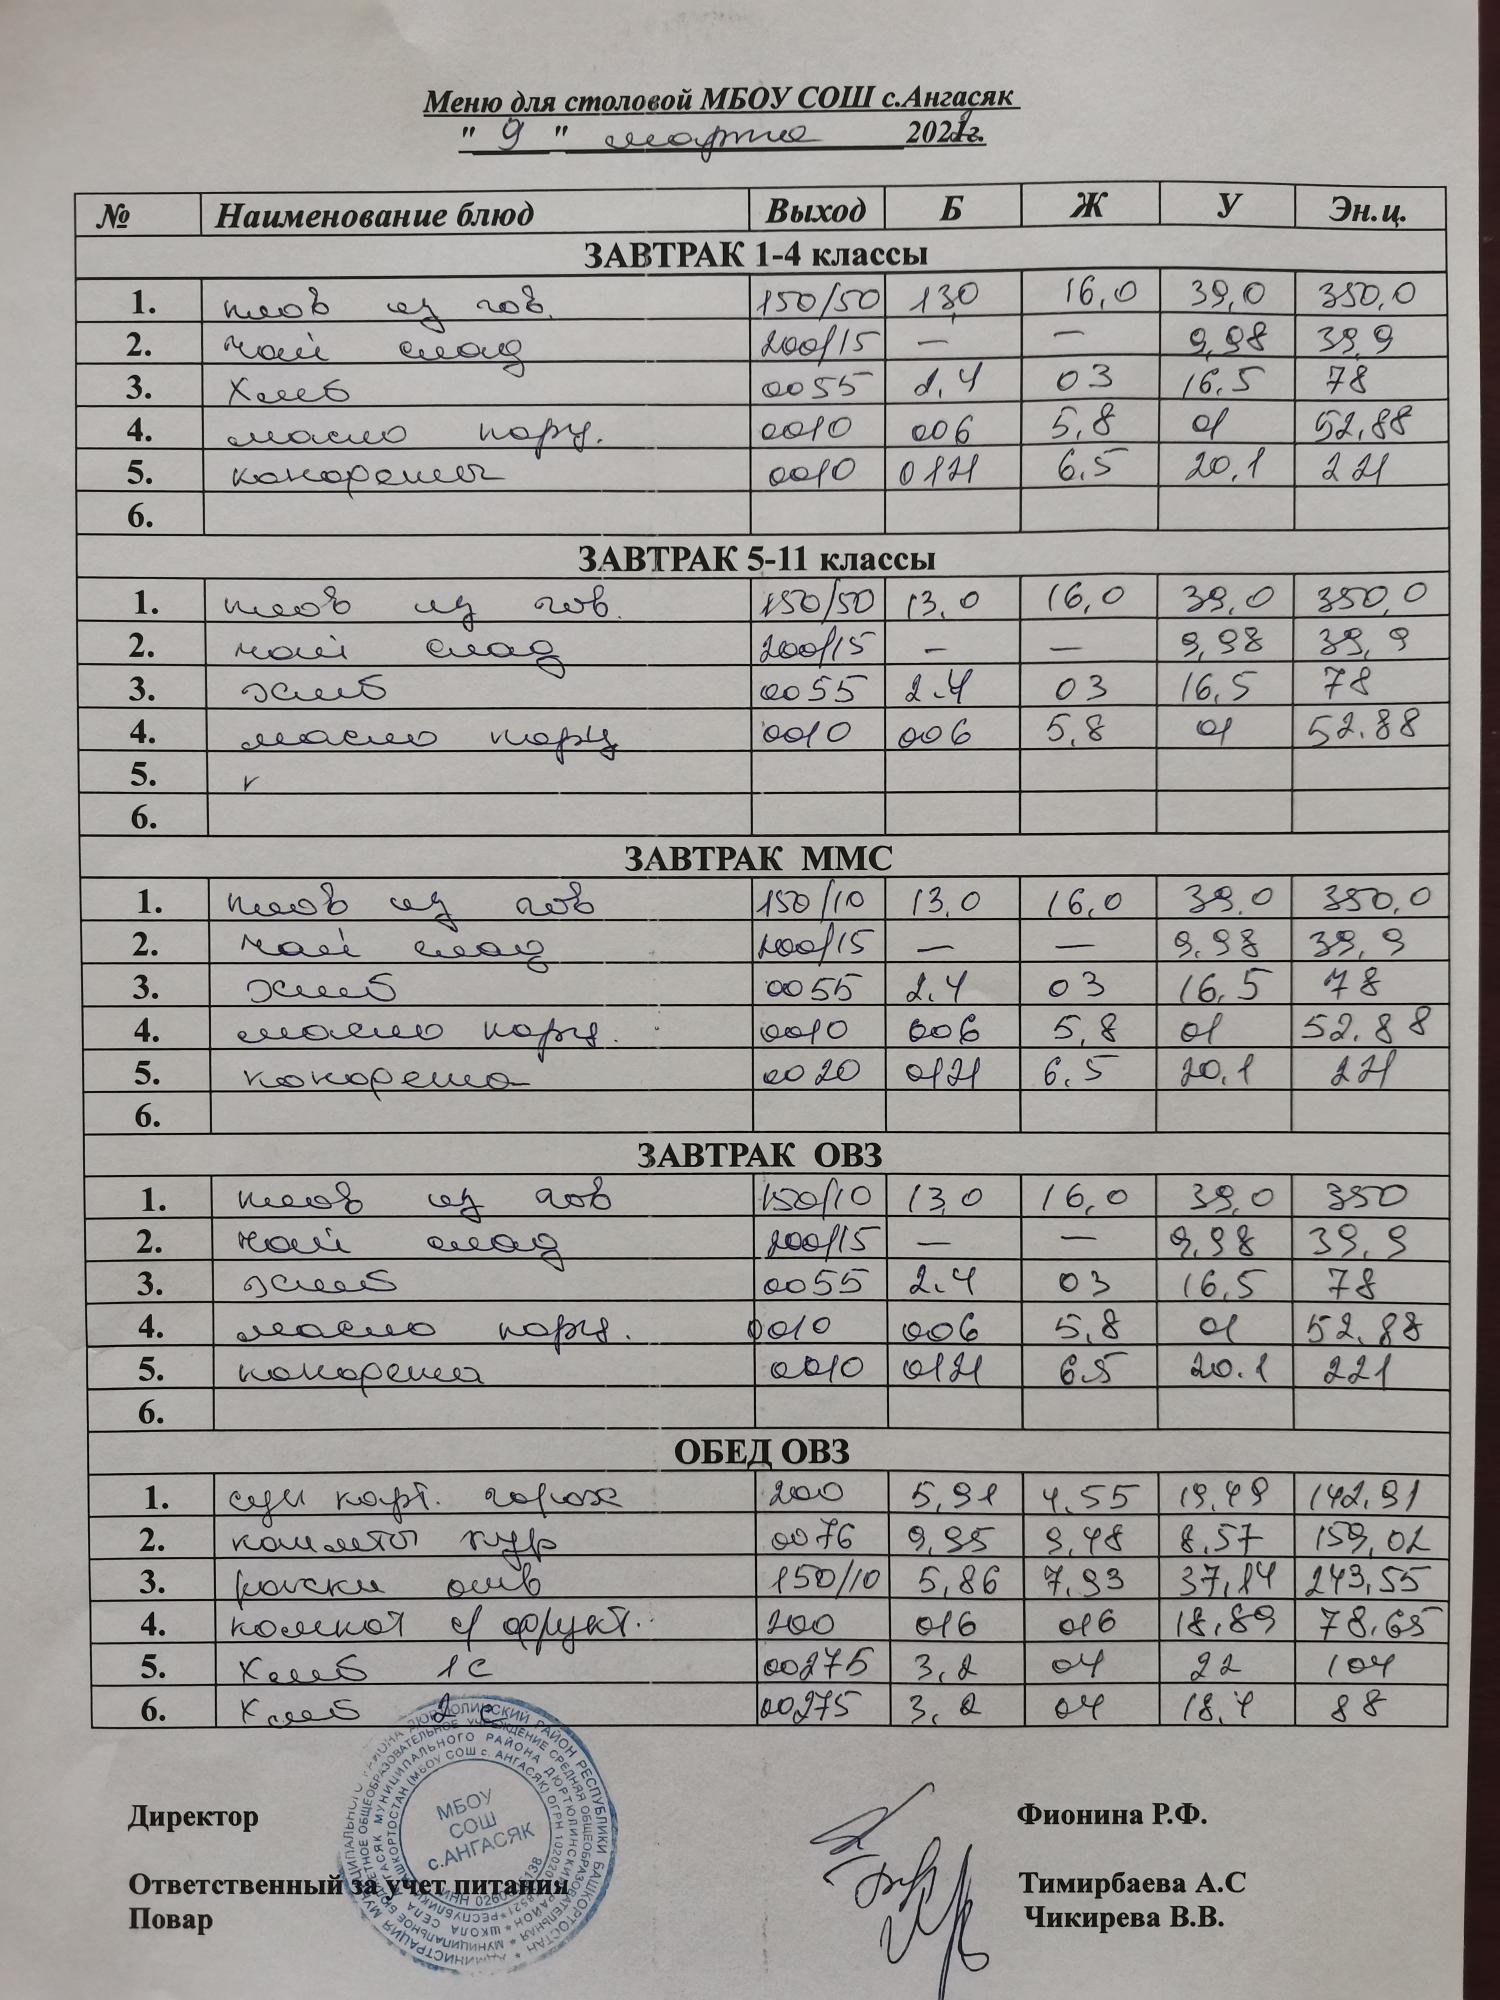 Меню для столовой МБОУ СОШ с.Ангасяк
" 9 " марта 2022г.
№ Наименование блюд Выход Б Ж У Эн.ц.
ЗАВТРАК 1-4 классы
1. плов из гов. 150/50 13,0 16,0 39,0 350,0
2. чай слад 200/15 — — 9,98 39,9
3. Хлеб 0055 2.4 03 16.5 78
4. масло порц. 0010 006 5,8 01 52,88
5. конфеты 0010 0121 6.5 20,1 221
6.
ЗАВТРАК 5-11 классы
1. плов из гов. 150/50 13,0 16,0 39,0 350,0
2. чай слад 200/15 — — 9,98 39,9
3. хлеб 0055 2.4 03 16,5 78
4. масло порц 0010 006 5,8 01 52.88
5. к
6.
ЗАВТРАК ММС
1. плов из гов 150/10 13,0 16,0 39,0 350,0
2. чай слад 200/15 — — 9,98 39,9
3. хлеб 0055 2.4 03 16,5 78
4. масло порц. 0010 006 5,8 01 52.88
5. 0020 0121 6.5 20,1 221
6.
ЗАВТРАК ОВЗ
1. плов из гов 150/10 13,0 16,0 39,0 350
2. чай слад 200/15 — — 9,98 39,9
3. хлеб 0055 2.4 03 16,5 78
4. масло порц. 0010 006 5,8 01 52,88
5. 0010 0121 6.5 20.1 221
6.
ОБЕД ОВЗ
1. суп карт. горох 200 5,91 4.55 19,49 142,91
2. котлеты кур 0076 9,95 9,48 8.57 159,02
3. рожки отв 150/10 5,86 7,93 37,14 243,55
4. компот с/фрукт. 200 016 016 18,89 78,65
5. Хлеб 1с 00275 3,2 04 22 104
6. Хлеб 2с 00275 3,2 04 18,4 88
МБОУ
СОШ
с.АНГАСЯК
Директор Фионина Р.Ф.
Ответственный за учет питания Тимирбаева А.С
Повар Чикирева В.В.